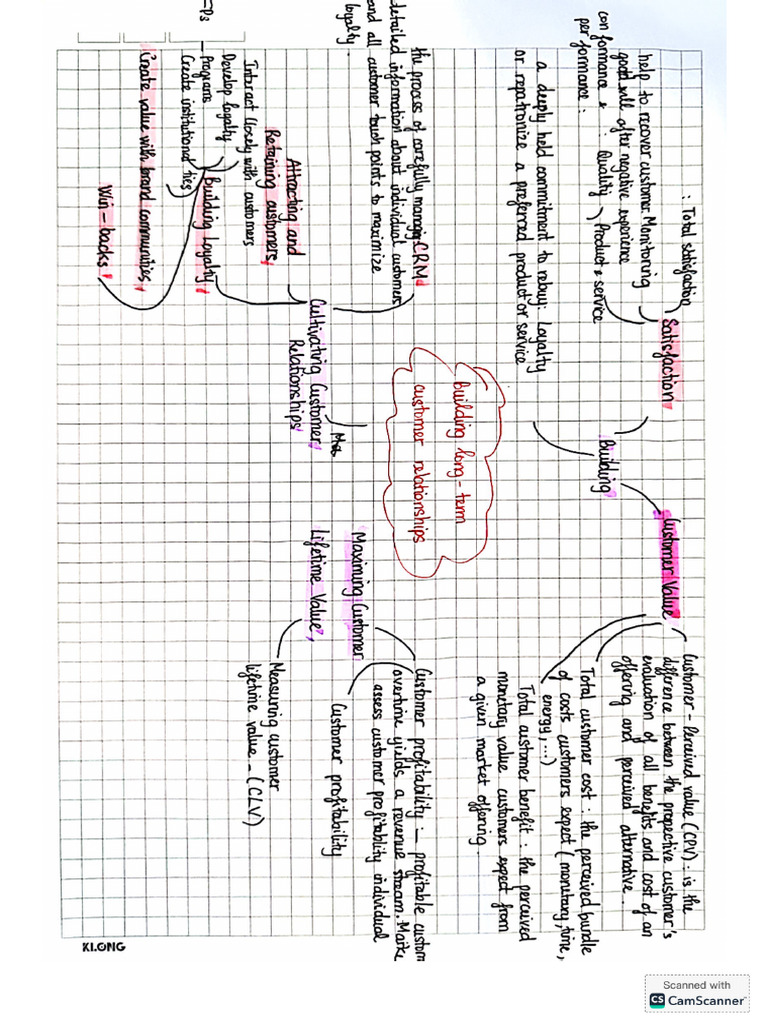 building long-term
customer relationships
Building
Customer Value
Customer - Perceived value (CPV) : is the
difference between the propective customer's
evaluation of all benefits and cost of an
offering and perceived alternative.
Total customer cost : the perceived bundle
of costs customers expect (monetary, time,
energy, ...)
Total customer benefit : the perceived
monetary value customers expect from
a given market offering
Satisfaction
: Total satisfaction
help to recover customer Monitoring
good will after negative experience
conformance & : Quality Product & service
performance :
a deeply held commitment to rebuy : Loyalty
or repatronize a preferred product or service
Maximing Customer
Lifetime Value
Customer profitability : - profitable custom
overtime yields a revenue stream. Marke
assess customer profitablity individual
Customer profitability
Measuring customer
lifetime value - (CLV)
Cultivating Customer
Relationships
the process of carefully managing CRM
detailed information about individual customers
and all customer touch points to maximize
loyalty.
Attracting and
Retaining customers
Building Loyalty
Interact closely with customers
Develop loyalty
Programs
Create institutional ties
Create value with brand communities
Win - backs
-Ps
KLONG
Scanned with
CS CamScanner